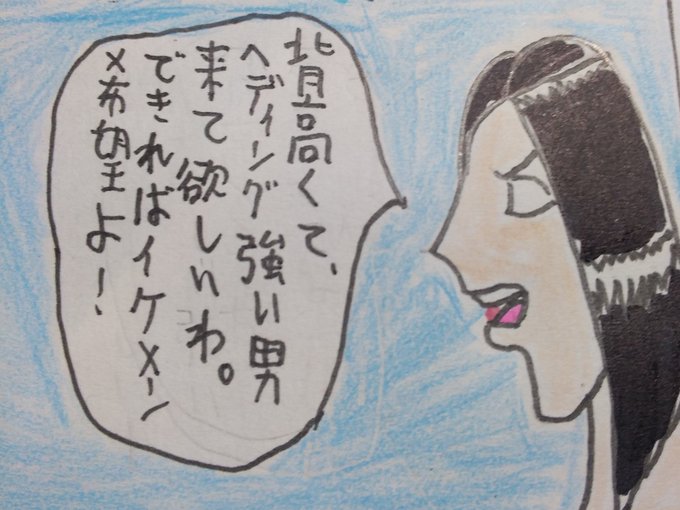 背高くて、
ヘディング強い男
来て欲しいわ。
できればイケメーン
メ希望よ!